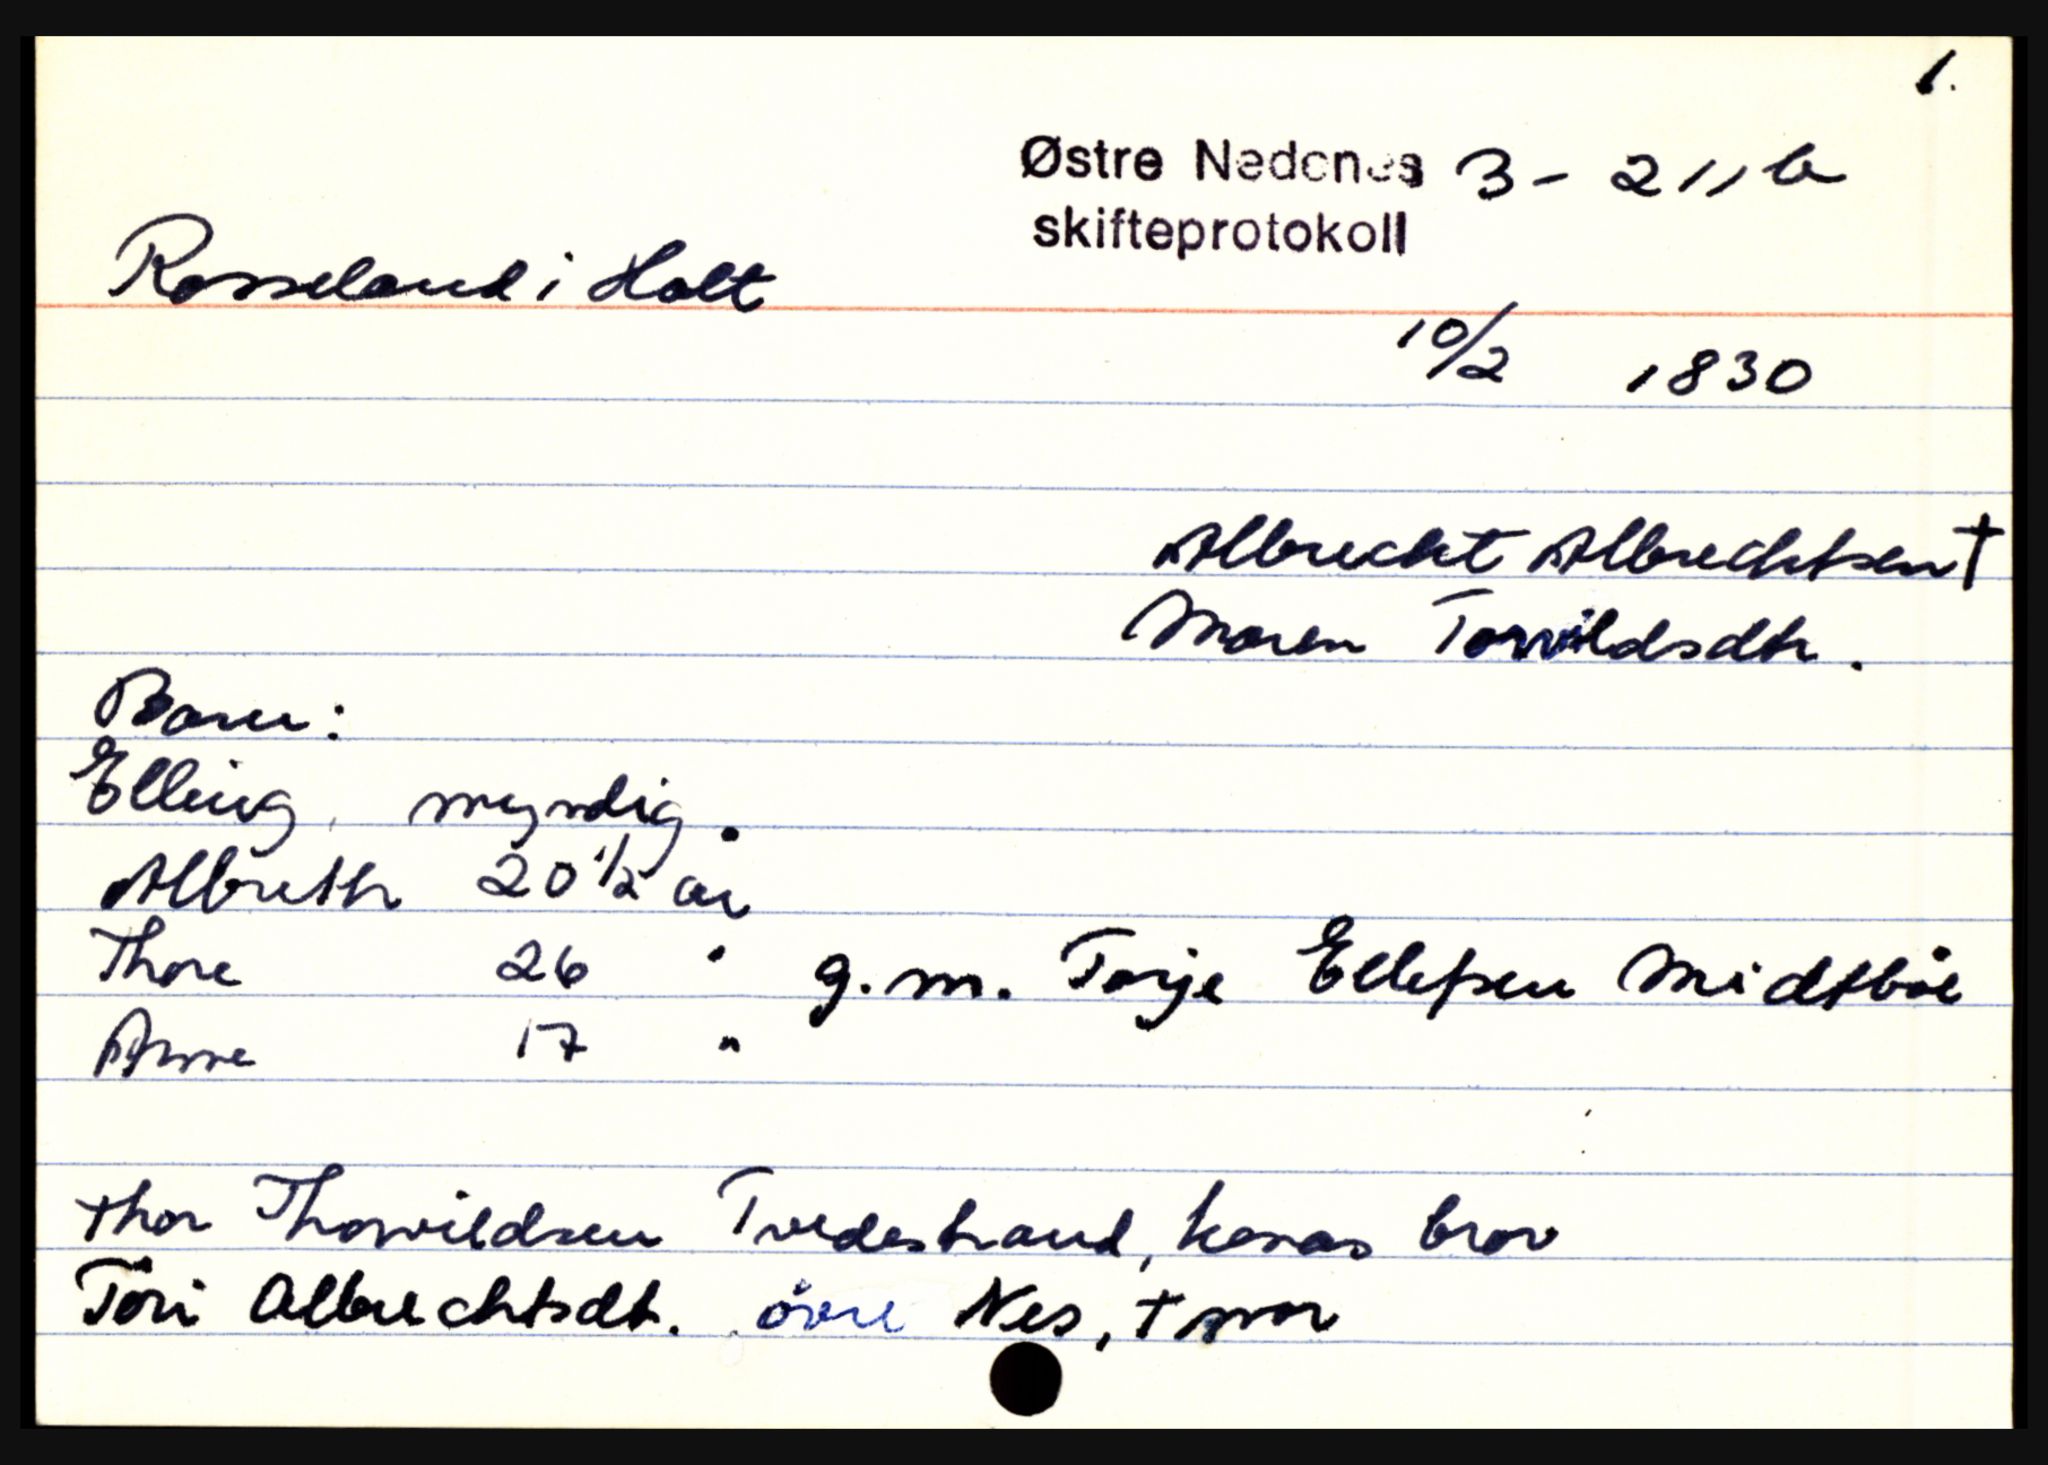 1.
Østre Nedenes 3 - 211 b
skifteprotokoll
Rosseland i Holt
10/2 1830
Albrecht Albrechtsen †
Maren Torvildsdtr.
Barn:
Elling, myndig.
Albreth 20 1/2 år
Thore 26 " g.m. Torje Ellefsen Midtböe
Anne 17 "
Thor Thorvildsen Tvedestrand, konas bror
Töri Albrechtsdt. övre Nes, † mor